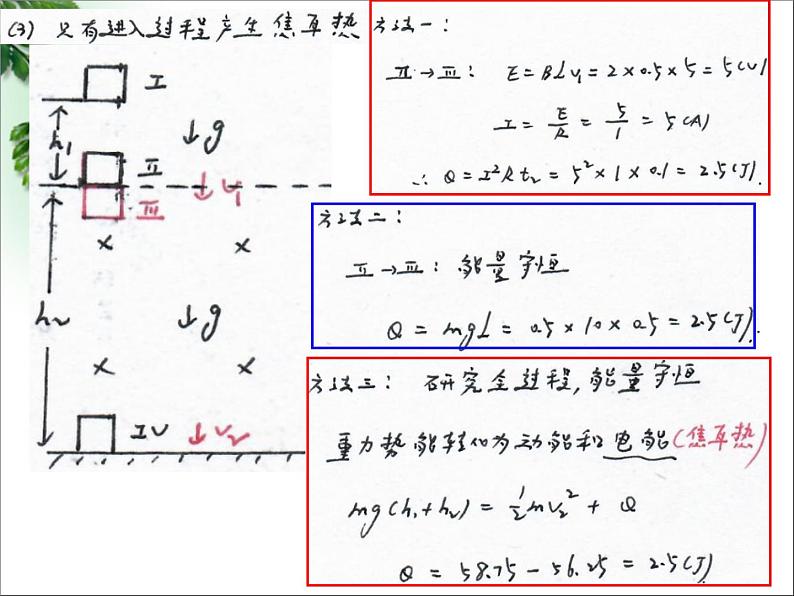 (3) 只有进入过程产生焦耳热
I
h₁
↓g
II
↓V₁
III
×  ×
h₂
↓g
×  ×
IV ↓V₂
方法一:
II→III: E=BLV₁=2×0.5×5=5(V)
I=E/R=5/1=5(A)
∴ Q=I²Rt₂=5²×1×0.1=2.5(J).
方法二:
II→III: 能量守恒
Q=mgL=0.5×10×0.5=2.5(J).
方法三: 研究全过程,能量守恒
重力势能转化为动能和电能(焦耳热)
mg(h₁+h₂)=½mV₂²+Q
Q=58.75-56.25=2.5(J)